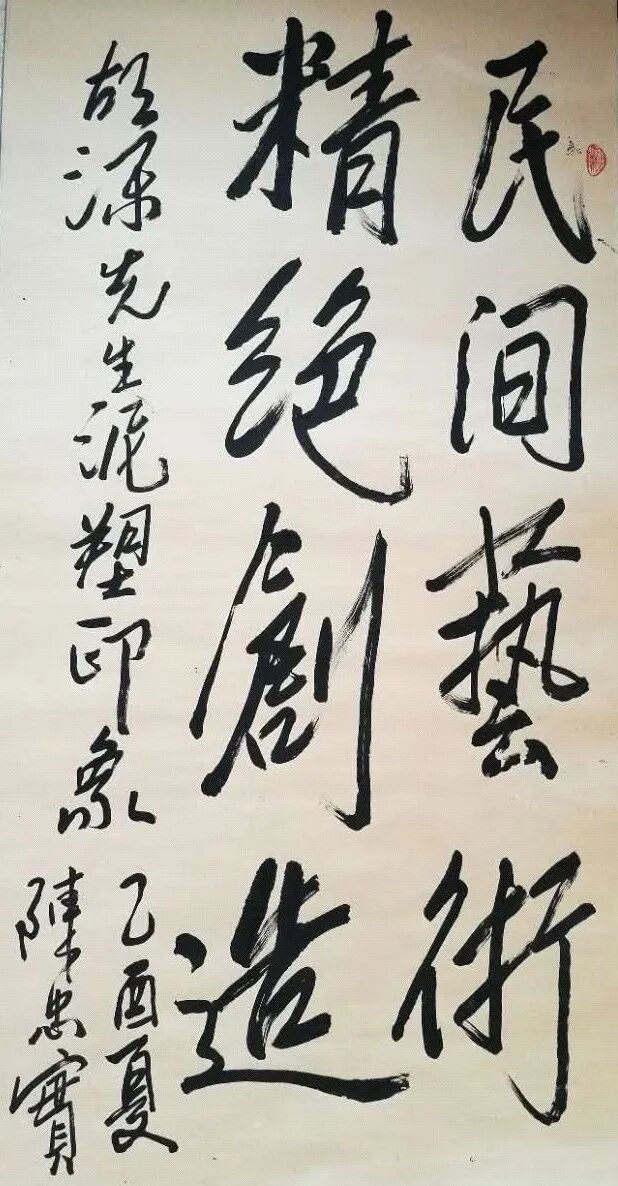 民间藝術
精絶創造
胡深先生泥塑印象
乙酉夏
陳忠實